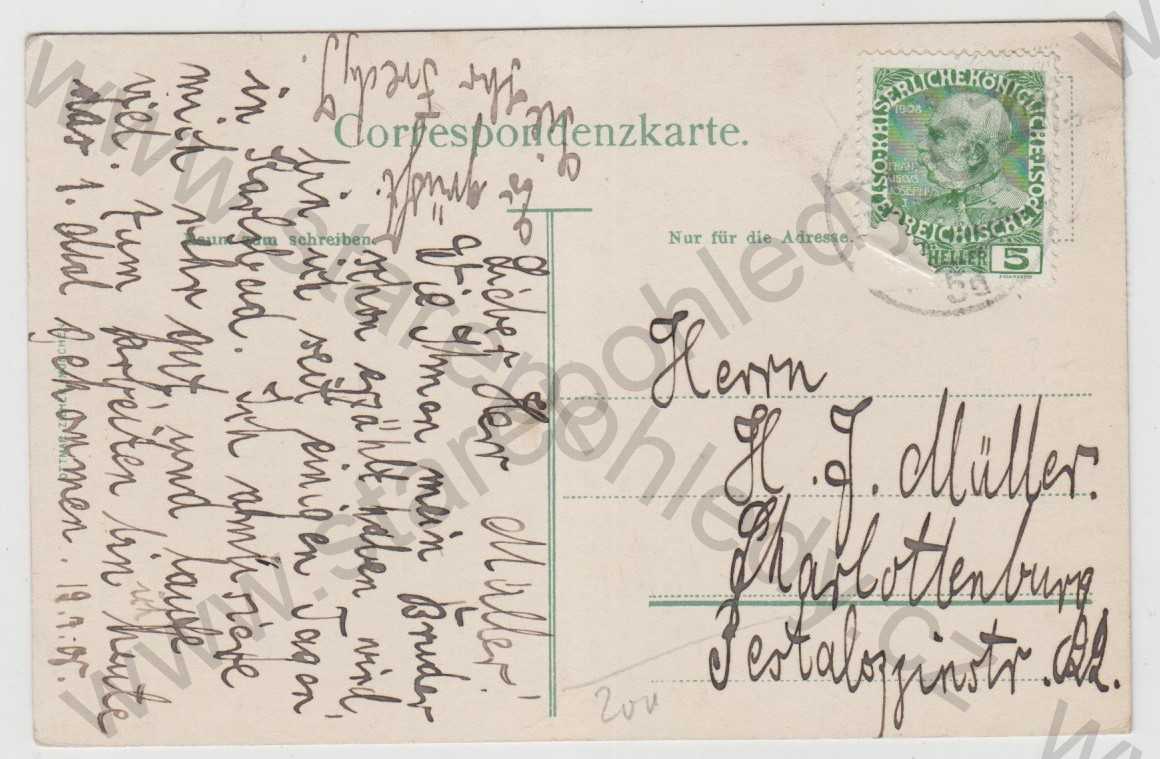 Correspondenzkarte.
Raum zum schreiben.
Nur für die Adresse.
KAISERLICHE KÖNIGLICHE
ÖSTERREICHISCHE POST
1908
HELLER 5
Herrn
H. J. Müller.
Charlottenburg
Pestalozzistr. 22.
Lieber Herr Müller!
Wie Ihnen mein Bruder
schon erzählt haben wird,
bin ich seit einigen Tagen
in Karlsbad. Ich amüsiere
mich sehr gut und lause
viel. Zum Arbeiten bin ich heute
das 1. Mal gekommen.
Es grüßt
Sie
Ihr Fredy
200
www.starepohledy.cz